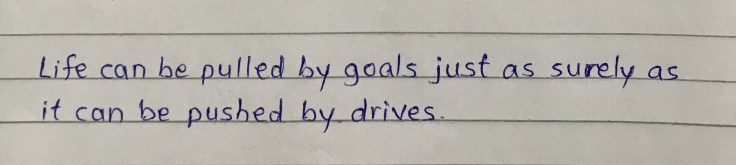 Life can be pulled by goals just as surely as
it can be pushed by drives.